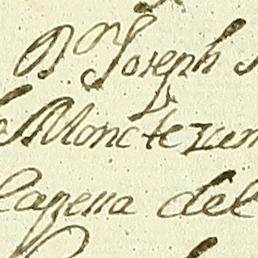 Dⁿ Joseph
Moctezum
Capena del